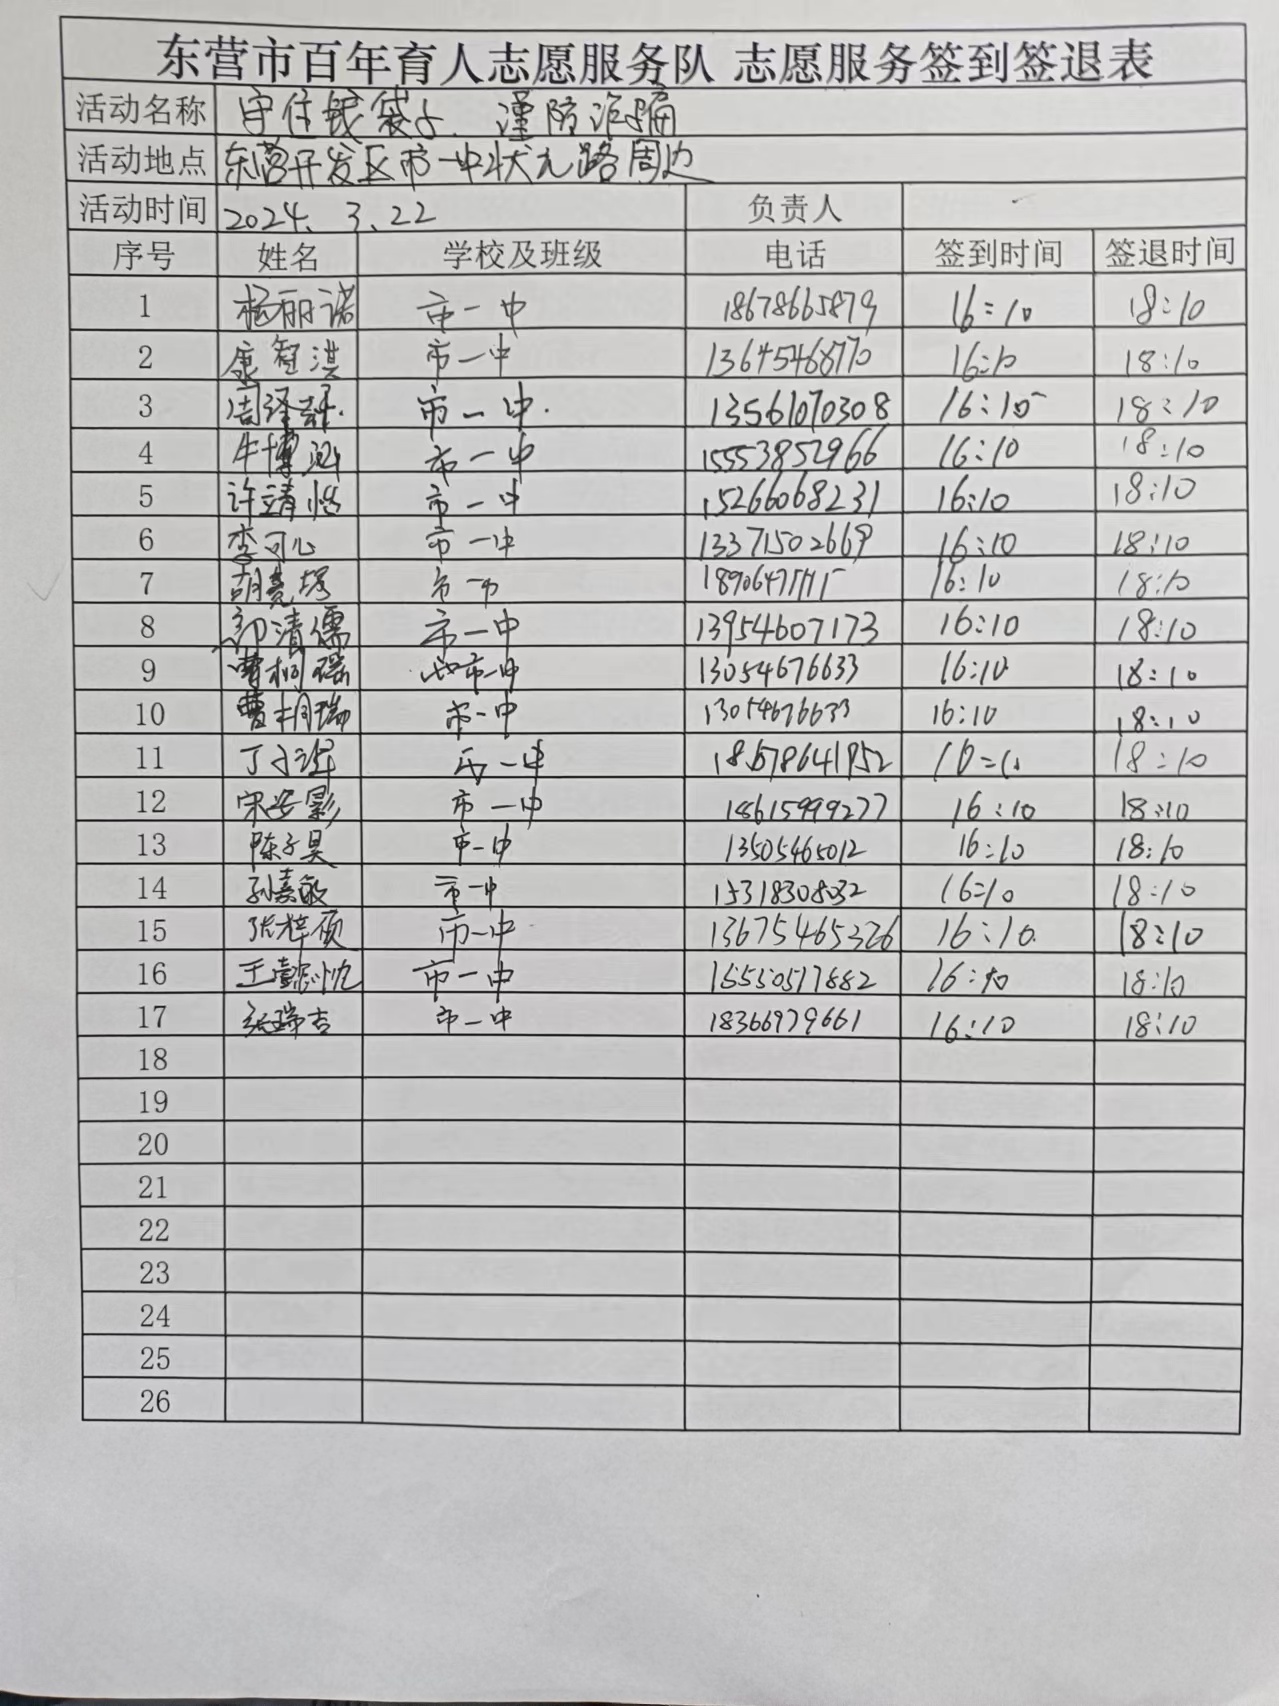 东营市百年育人志愿服务队 志愿服务签到签退表
活动名称 守住钱袋子、谨防诈骗
活动地点 东营开发区市一中状元路周边
活动时间 2024.3.22 负责人
序号 姓名 学校及班级 电话 签到时间 签退时间
1 杨丽诺 市一中 18678665879 16:10 18:10
2 康智淇 市一中 13645468770 16:10 18:10
3 周泽 市一中. 13561070308 16:10 18:10
4 牛博涵 市一中 15553852966 16:10 18:10
5 许靖怡 市一中 15266068231 16:10 18:10
6 李可心 市一中 13371502669 16:10 18:10
7 胡 市一中 16:10 18:10
8 郭清儒 市一中 13954607173 16:10 18:10
9 曹桐瑶 市一中 13054676633 16:10 18:10
10 曹桐瑞 市一中 13054676633 16:10 18:10
11 丁子 一中 18678641952 18:10
12 宋安影 市一中 18615999277 16:10 18:10
13 陈子昊 市一中 13505465012 16:10 18:10
14 孙嘉敏 市一中 15318308032 16:10 18:10
15 张梓硕 市一中 13675465326 16:10. 18:10
16 王懿忱 市一中 15550517882 16:10 18:10
17 张瑞吉 市一中 18366979661 16:10 18:10
18
19
20
21
22
23
24
25
26